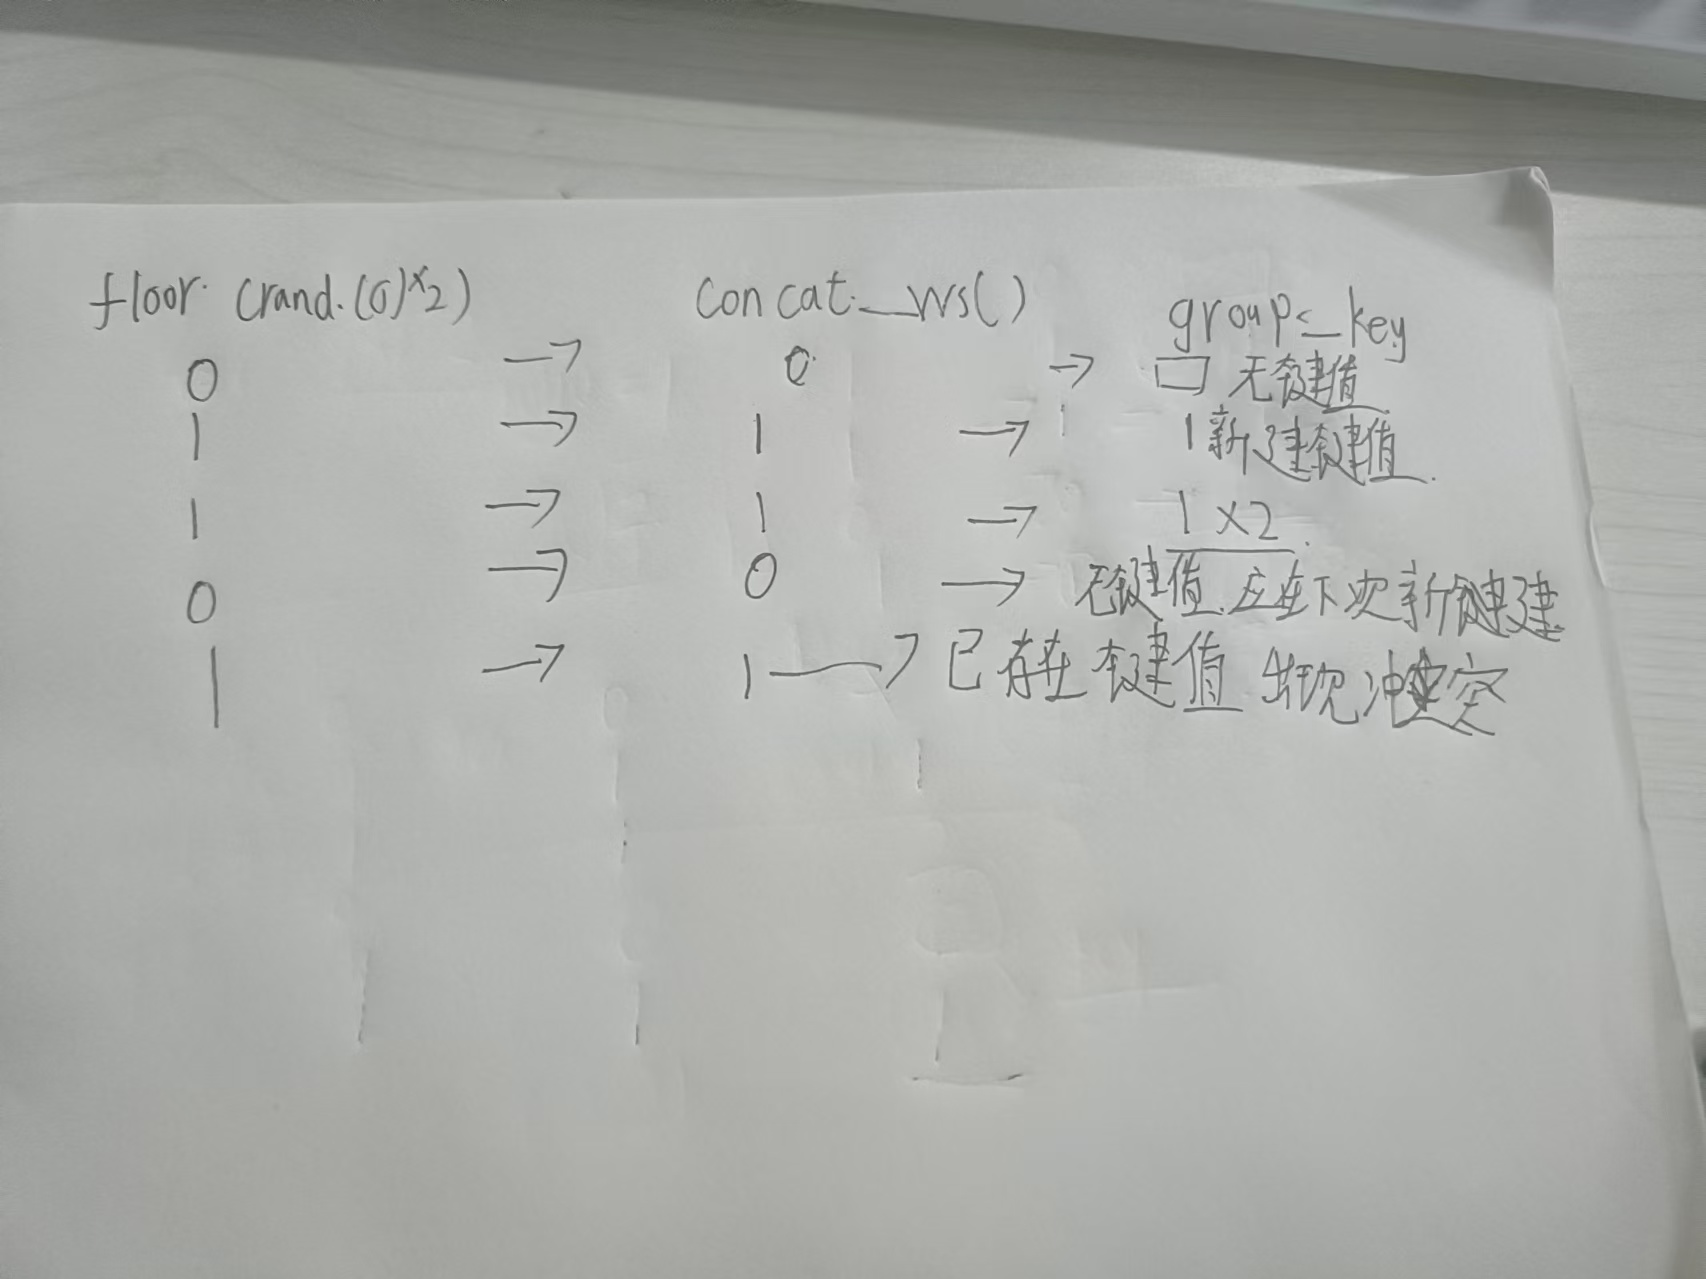 floor (rand.(0)*2) concat_ws() group_key
0 → 0 → 口 无键值
1 → 1 → 1 新建键值.
1 → 1 → 1×2.
0 → 0 → 无键值.应在下次新键建
1 → 1 → 已存在键值 出现冲突